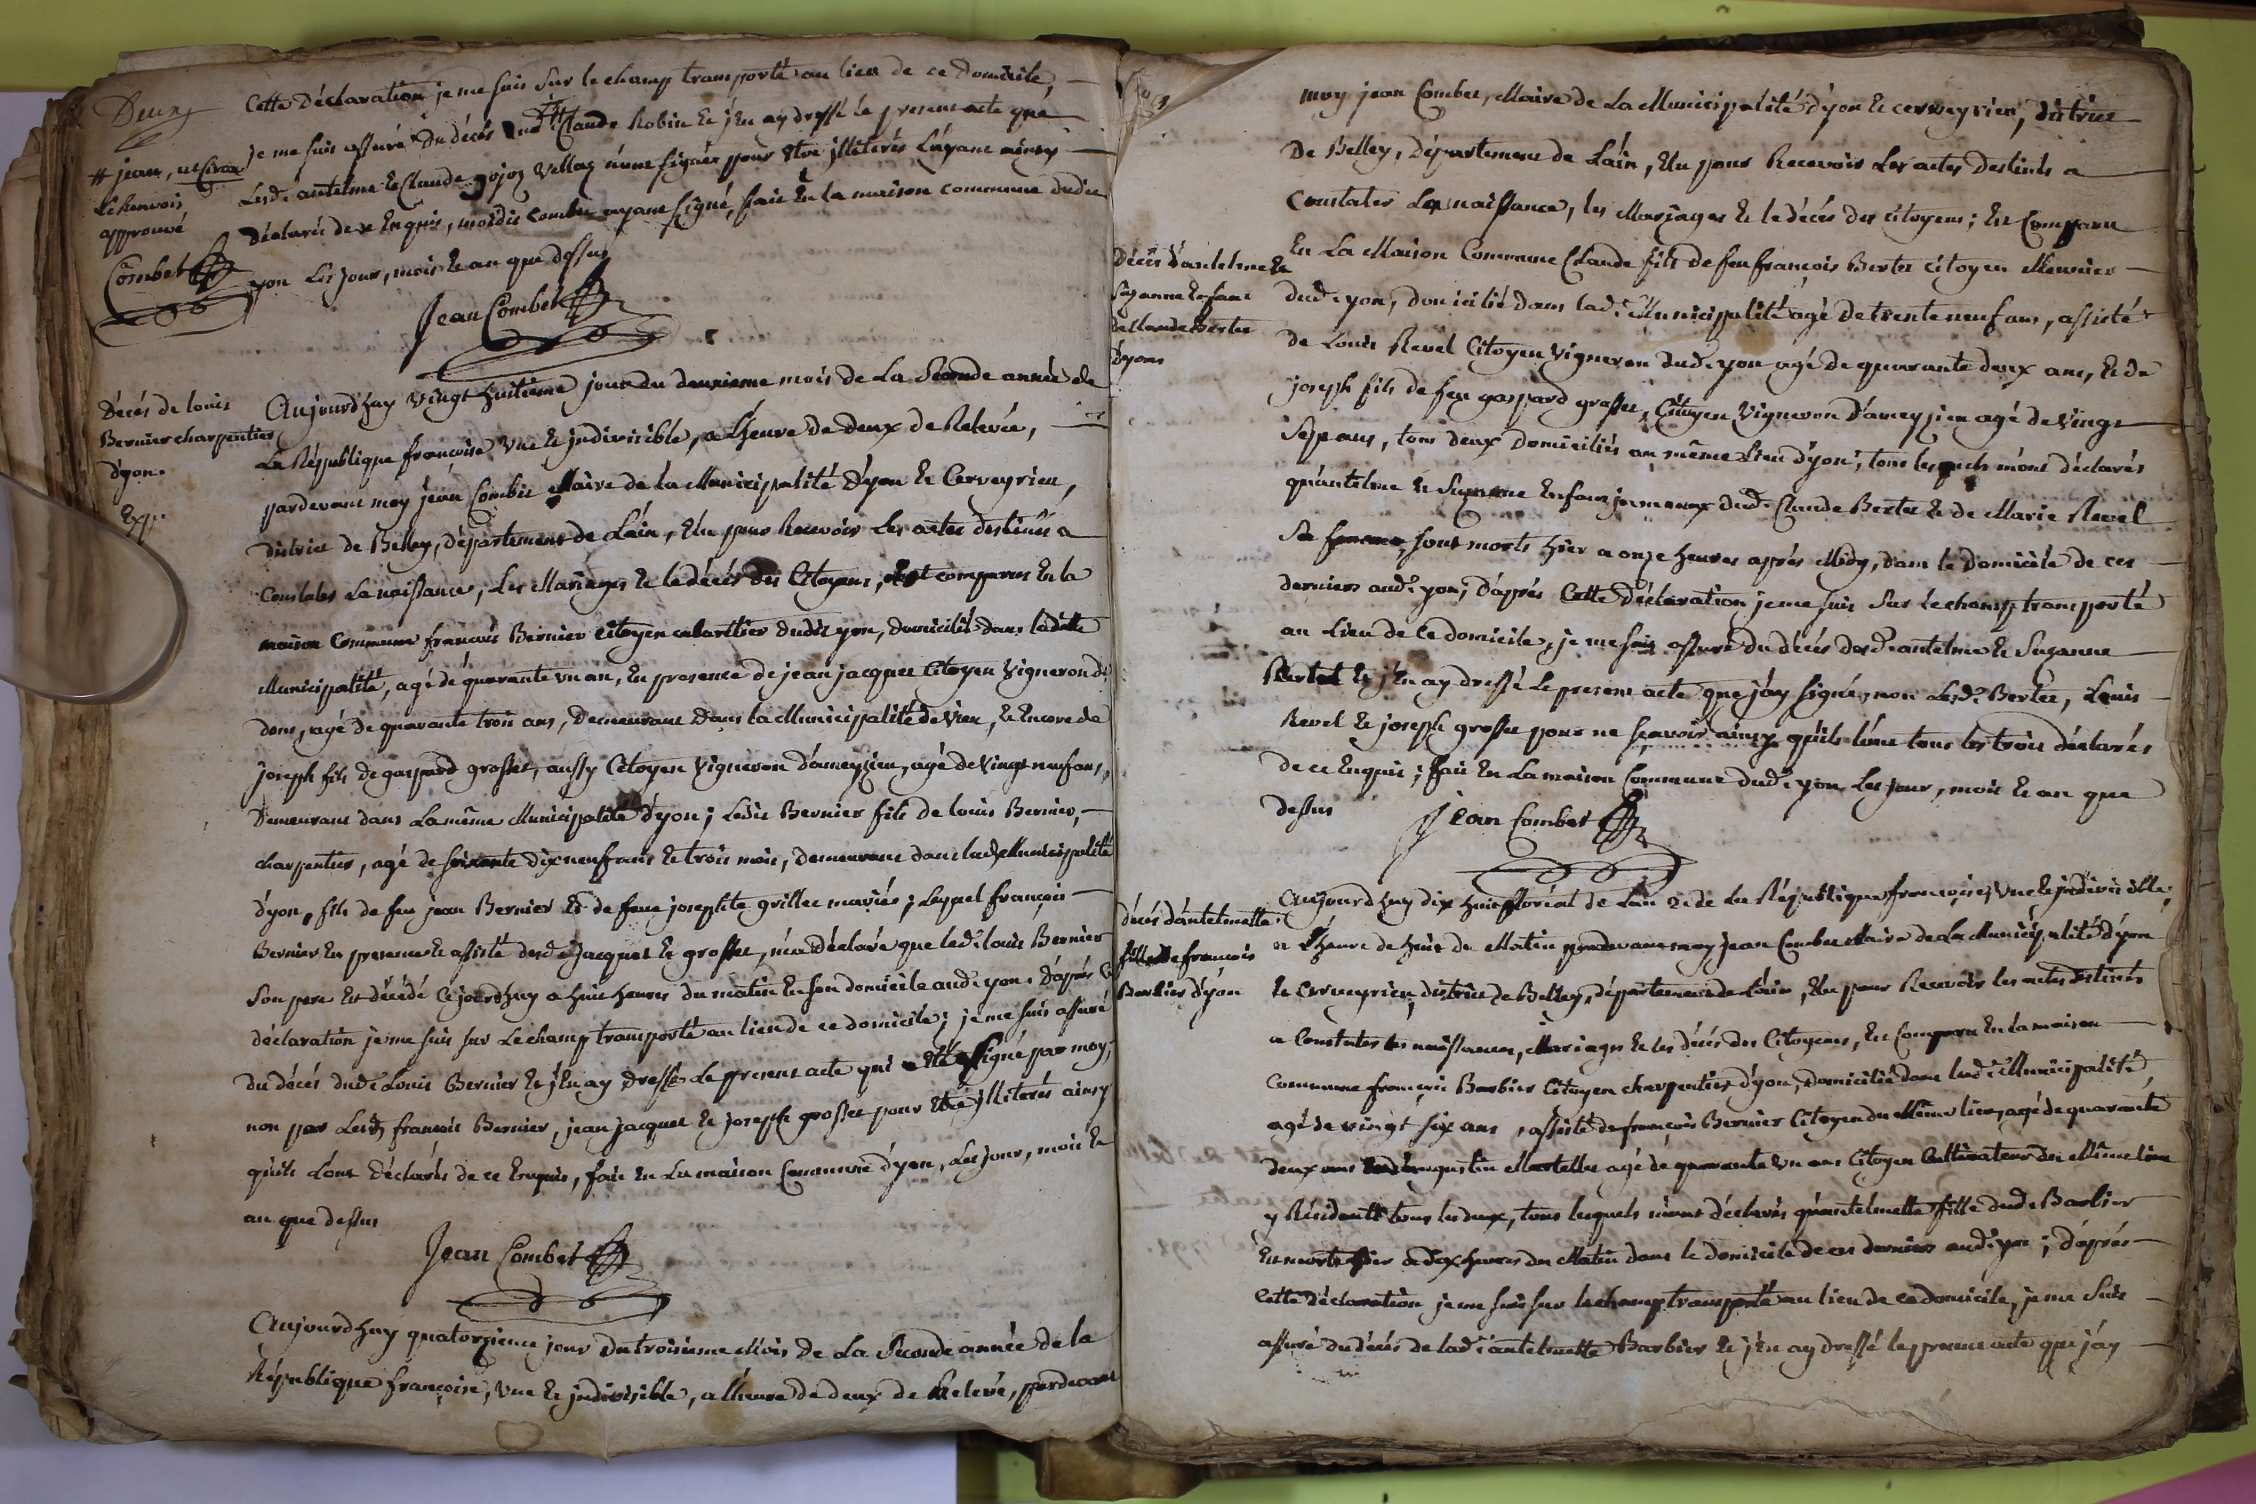 Deux
Cette déclaration je me suis sur le champ transporté au lieu de ce domicile,
je me suis assuré du décés dud. # Claude Robin et j'en ay dressé le present acte que
# jean, et
le Renvois
approuvé
Combet
Lesd. antelme et Claude gojoz Vellaz n'ont signés pour être illiterés l'ayant ainsy
déclarés de ce Enquis, moidis combet ayant signé, fait En la maison commune dudit
yon Les jour, mois et an que dessus
Jean Combet
décés de louis
Bernier charpentier
d'yon.
Exp.
Aujourdhuy vingt huitieme jour du deuxieme mois de La Seconde année de
La République françoise Une et jndivisible, a l'heure de deux de Relevée,
pardevant moy jean Combet Maire de la Municipalité d'yon et Cerveyrieu,
district de Belley, département de L'ain, Elu pour Recevoir Les actes destinés a
Constater La naissance, Les Mariages et le décés des Citoyens, Est comparus En la
maison Commune françois Bernier citoyen cabartier dudit yon, domicilié dans ladite
Municipalité, agé de quarante un an, En presence de jean jacquet Citoyen Vigneron de
dons, agé de quarante trois ans, Demeurant Dans la Municipalité de Vieu, et Encore de
joseph fils de gaspard grosset, aussy Citoyen Vigneron d'ameyzieu, agé de Vingt neuf ans,
Demeurant dans La même Municipalité d'yon; Ledit Bernier fils de louis Bernier,
charpentier, agé de soixante dix neuf ans et trois mois, demeurant dans lad. Municipalité
d'yon, fils de feu jean Bernier et de feue josephte grillet mariés; Lequel françois
Bernier En presence et assisté desd. jacquet et grosset, m'a déclaré que led. louis Bernier
Son pere Est décédé Cejourdhuy a huit heures du matin En son domicile aud. yon. D'après
déclaration je me suis sur Le champ transporté au lieu de ce domicile; je me suis assuré
du décés dud. Louis Bernier et j'En ay dressé Le present acte qui a Eté Signé par moy,
non par Lesd. françois Bernier, jean jacquet et joseph grosset pour Etre jlliterés ainsy
qu'ils L'ont déclarés de ce Enquis, fait En La maison Commune d'yon, Les jour, mois et
an que dessus
Jean Combet
Aujourdhuy quatorzieme jour du troisieme Mois de La Seconde année de la
République françoise, une et jndivisible, a l'heure de deux de Relevée, pardevant
moy jean Combet, Maire de La Municipalité d'yon et cerveyrieu, district
De Belley, département de L'ain, Elu pour Recevoir Les actes destinés a
Constater La naissance, les Mariages et le décés des citoyens; Est Comparu
En La Maison Commune Claude fils de feu françois Bertet Citoyen Meunier
Décés d'antelme et
Suzanne Enfans
de Claude Bertet
d'yon
dud. yon, domicilié dans lad. Municipalité agé de trente neuf ans, assisté
de Louis Revel Citoyen Vigneron dud. yon agé de quarante deux ans, et de
joseph fils de feu gaspard grosset, Citoyen Vigneron d'ameyzieu agé de vingt
Sept ans, tous deux Domiciliés au même Lieu d'yon; tous lesquels m'ont déclarés
qu'antelme et Suzanne Enfans jumeaux dud. Claude Bertet et de Marie Revel
Sa femme, sont morts hier a onze heures après Midy, dans le domicile de ces
derniers aud. yon; d'après Cette déclaration je me suis Sur le champ transporté
au Lieu de Ce domicile, je me suis assuré du décés desd. antelme et Suzanne
Bertet et j'En ay dressé Le present acte que j'ay signé, non Lesd. Bertet, Louis
Revel et joseph grosset pour ne sçavoir ainsy qu'ils l'ont tous les trois déclarés
de ce Enquis; fait En La maison Commune dud. yon Les jour, mois et an que
dessus
Jean Combet
décés d'antelmette
fille de françois
Barbier d'yon
Aujourdhuy dix huit floréal de L'an 2e de La République françoise, Une et jndivisible,
a L'heure de huit du Matin pardevant moy jean Combet Maire de La Municipalité d'yon
et Cerveyrieu, district de Belley, département de L'ain, Elu pour Recevoir les actes destinés
a Constater les naissances, Mariages et les décés des Citoyens, Est Comparu En la maison
Commune françois Barbier Citoyen charpentier d'yon, domicilié dans lad. Municipalité,
agé de vingt six ans, assisté de françois Bernier Citoyen du Même lieu, agé de quarante
deux ans et d'augustin Martellet agé de quarante un ans Citoyen Cultivateur du Même lieu
y Résidents tous les deux, tous lesquels m'ont déclarés qu'antelmette fille dud. Barbier
Est morte hier a dix heures du Matin dans le domicile de ces derniers aud. yon; d'après
Cette déclaration je me suis sur le champ transporté au lieu de ce domicile, je me Suis
assuré du décés de lad. antelmette Barbier et j'En ay dressé le present acte que j'ay